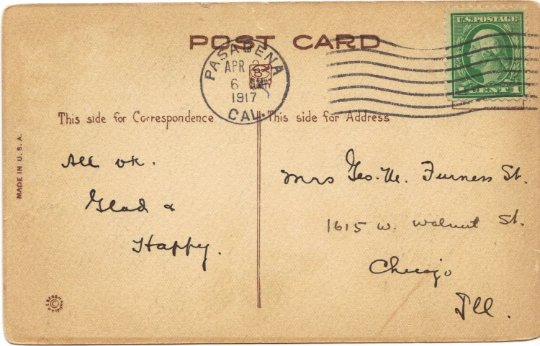 POST CARD
U.S. POSTAGE
CENT 1
PASADENA
APR
6
1917
CAL.
This side for Correspondence
This side for Address
MADE IN U.S.A.
All ok.
Glad &
Happy.
Mrs Geo. M. Furness St.
1615 W. Walnut St.
Chicago
Ill.